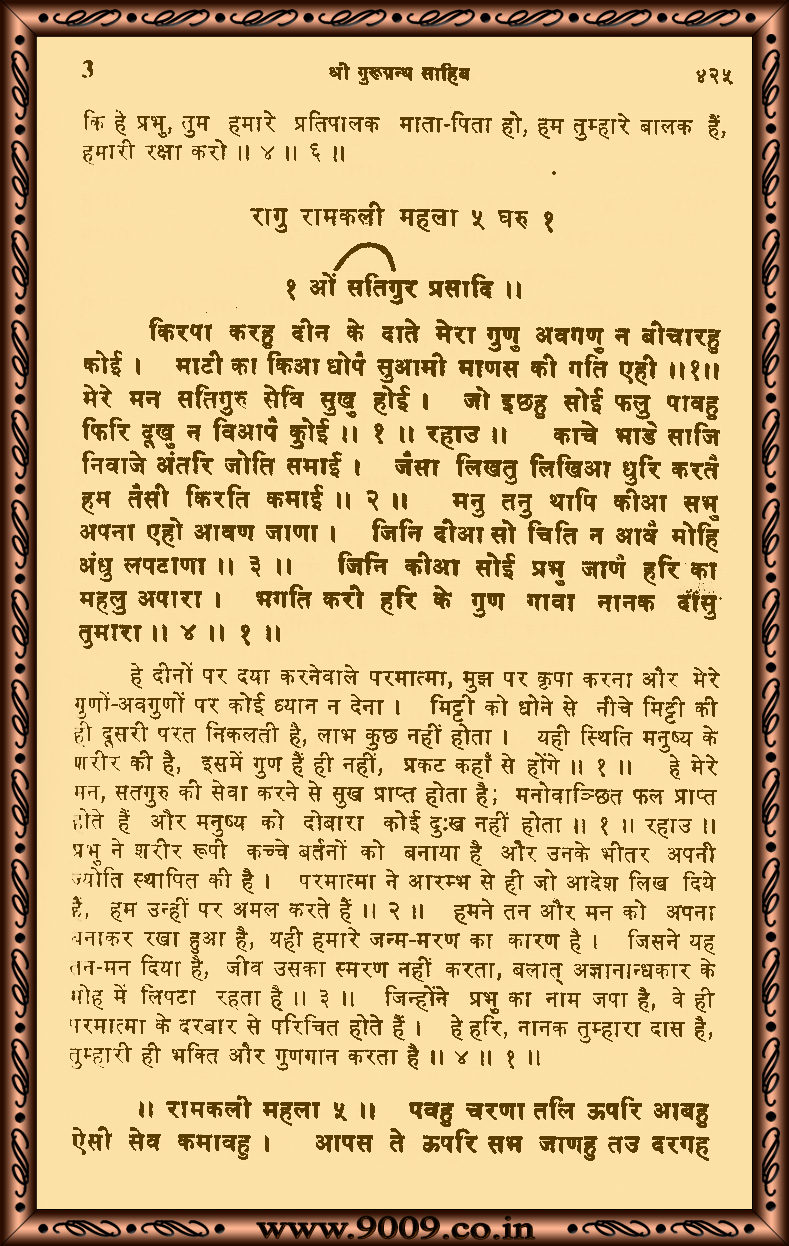 3 श्री गुरूग्रन्थ साहिब ४२५
कि हे प्रभु, तुम हमारे प्रतिपालक माता-पिता हो, हम तुम्हारे बालक हैं,
हमारी रक्षा करो ॥ ४ ॥ ६ ॥
रागु रामकली महला ५ घरु १
१ ओं सतिगुर प्रसादि ॥
किरपा करहु दीन के दाते मेरा गुणु अवगणु न बीचारहु
कोई । माटी का किआ धोपै सुआमी माणस की गति एही ॥१॥
मेरे मन सतिगुरु सेवि सुखु होई । जो इछहु सोई फलु पावहु
फिरि दूखु न विआपै कुोई ॥ १ ॥ रहाउ ॥ काचे भाडे साजि
निवाजे अंतरि जोति समाई । जैसा लिखतु लिखिआ धुरि करतै
हम तैसी किरति कमाई ॥ २ ॥ मनु तनु थापि कीआ सभु
अपना एहो आवण जाणा । जिनि दीआ सो चिति न आवै मोहि
अंधु लपटाणा ॥ ३ ॥ जिनि कीआ सोई प्रभु जाणै हरि का
महलु अपारा । भगति करी हरि के गुण गावा नानक दासु
तुमारा ॥ ४ ॥ १ ॥
हे दीनों पर दया करनेवाले परमात्मा, मुझ पर कृपा करना और मेरे
गुणों-अवगुणों पर कोई ध्यान न देना । मिट्टी को धोने से नीचे मिट्टी की
ही दूसरी परत निकलती है, लाभ कुछ नहीं होता । यही स्थिति मनुष्य के
शरीर की है, इसमें गुण हैं ही नहीं, प्रकट कहाँ से होंगे ॥ १ ॥ हे मेरे
मन, सतगुरु की सेवा करने से सुख प्राप्त होता है; मनोवाञ्छित फल प्राप्त
होते हैं और मनुष्य को दोबारा कोई दुःख नहीं होता ॥ १ ॥ रहाउ ॥
प्रभु ने शरीर रूपी कच्चे बर्तनों को बनाया है और उनके भीतर अपनी
ज्योति स्थापित की है । परमात्मा ने आरम्भ से ही जो आदेश लिख दिये
हैं, हम उन्हीं पर अमल करते हैं ॥ २ ॥ हमने तन और मन को अपना
बनाकर रखा हुआ है, यही हमारे जन्म-मरण का कारण है । जिसने यह
तन-मन दिया है, जीव उसका स्मरण नहीं करता, बलात् अज्ञानान्धकार के
मोह में लिपटा रहता है ॥ ३ ॥ जिन्होंने प्रभु का नाम जपा है, वे ही
परमात्मा के दरबार से परिचित होते हैं । हे हरि, नानक तुम्हारा दास है,
तुम्हारी ही भक्ति और गुणगान करता है ॥ ४ ॥ १ ॥
॥ रामकली महला ५ ॥ पवहु चरणा तलि ऊपरि आबहु
ऐसी सेव कमावहु । आपस ते ऊपरि सभ जाणहु तउ दरगह
www.9009.co.in